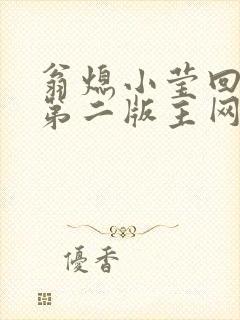 翁熄小莹回
第二版主网
優香